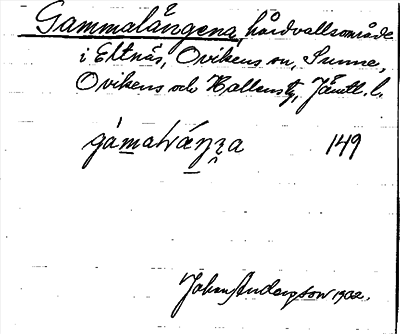 Gammalängena, hårdvallsområde
i Eltnäs, Ovikens sn, Sunne,
Ovikens och Hallens tg, Jämtl. l.
149
Johan Andersson 1902.